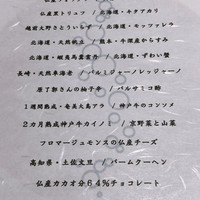 仏産黒トリュフ / 北海道・キタアカリ
越前大野さといらず / 北海道・モッツァレラ
北海道・天然帆立 / 熊本・牛深産からすみ
北海道・噴火湾 / 北海道・ずわい蟹
長崎・天然車海老 / パルミジャーノレッジャーノ
原了郭さんの柚子 / バルサミコ酢
1週間熟成・奄美大島 / 神戸牛のコンソメ
2カ月熟成神戸牛カイノミ / 京野菜と山菜
フロマージュモンスの仏産チーズ
高知県・土佐文旦 / バームクーヘン
仏産カカオ分64%チョコレート